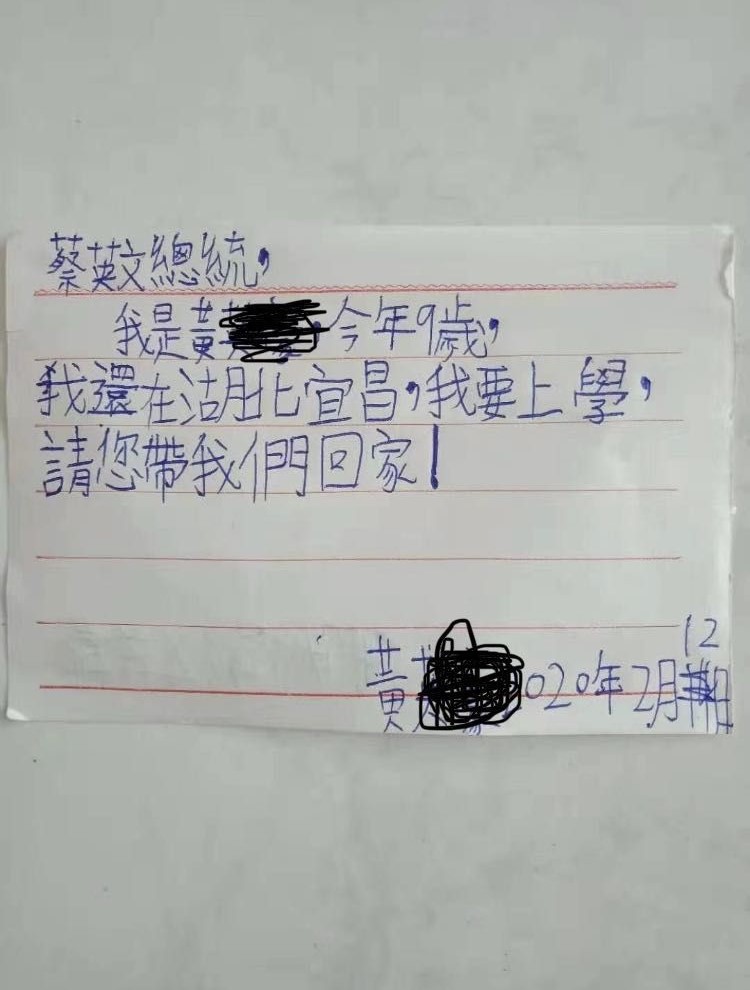 蔡英文總統,
我是黃 今年9歲,
我還在湖北宜昌,我要上學,
請您帶我們回家!
12
黃 020年2月